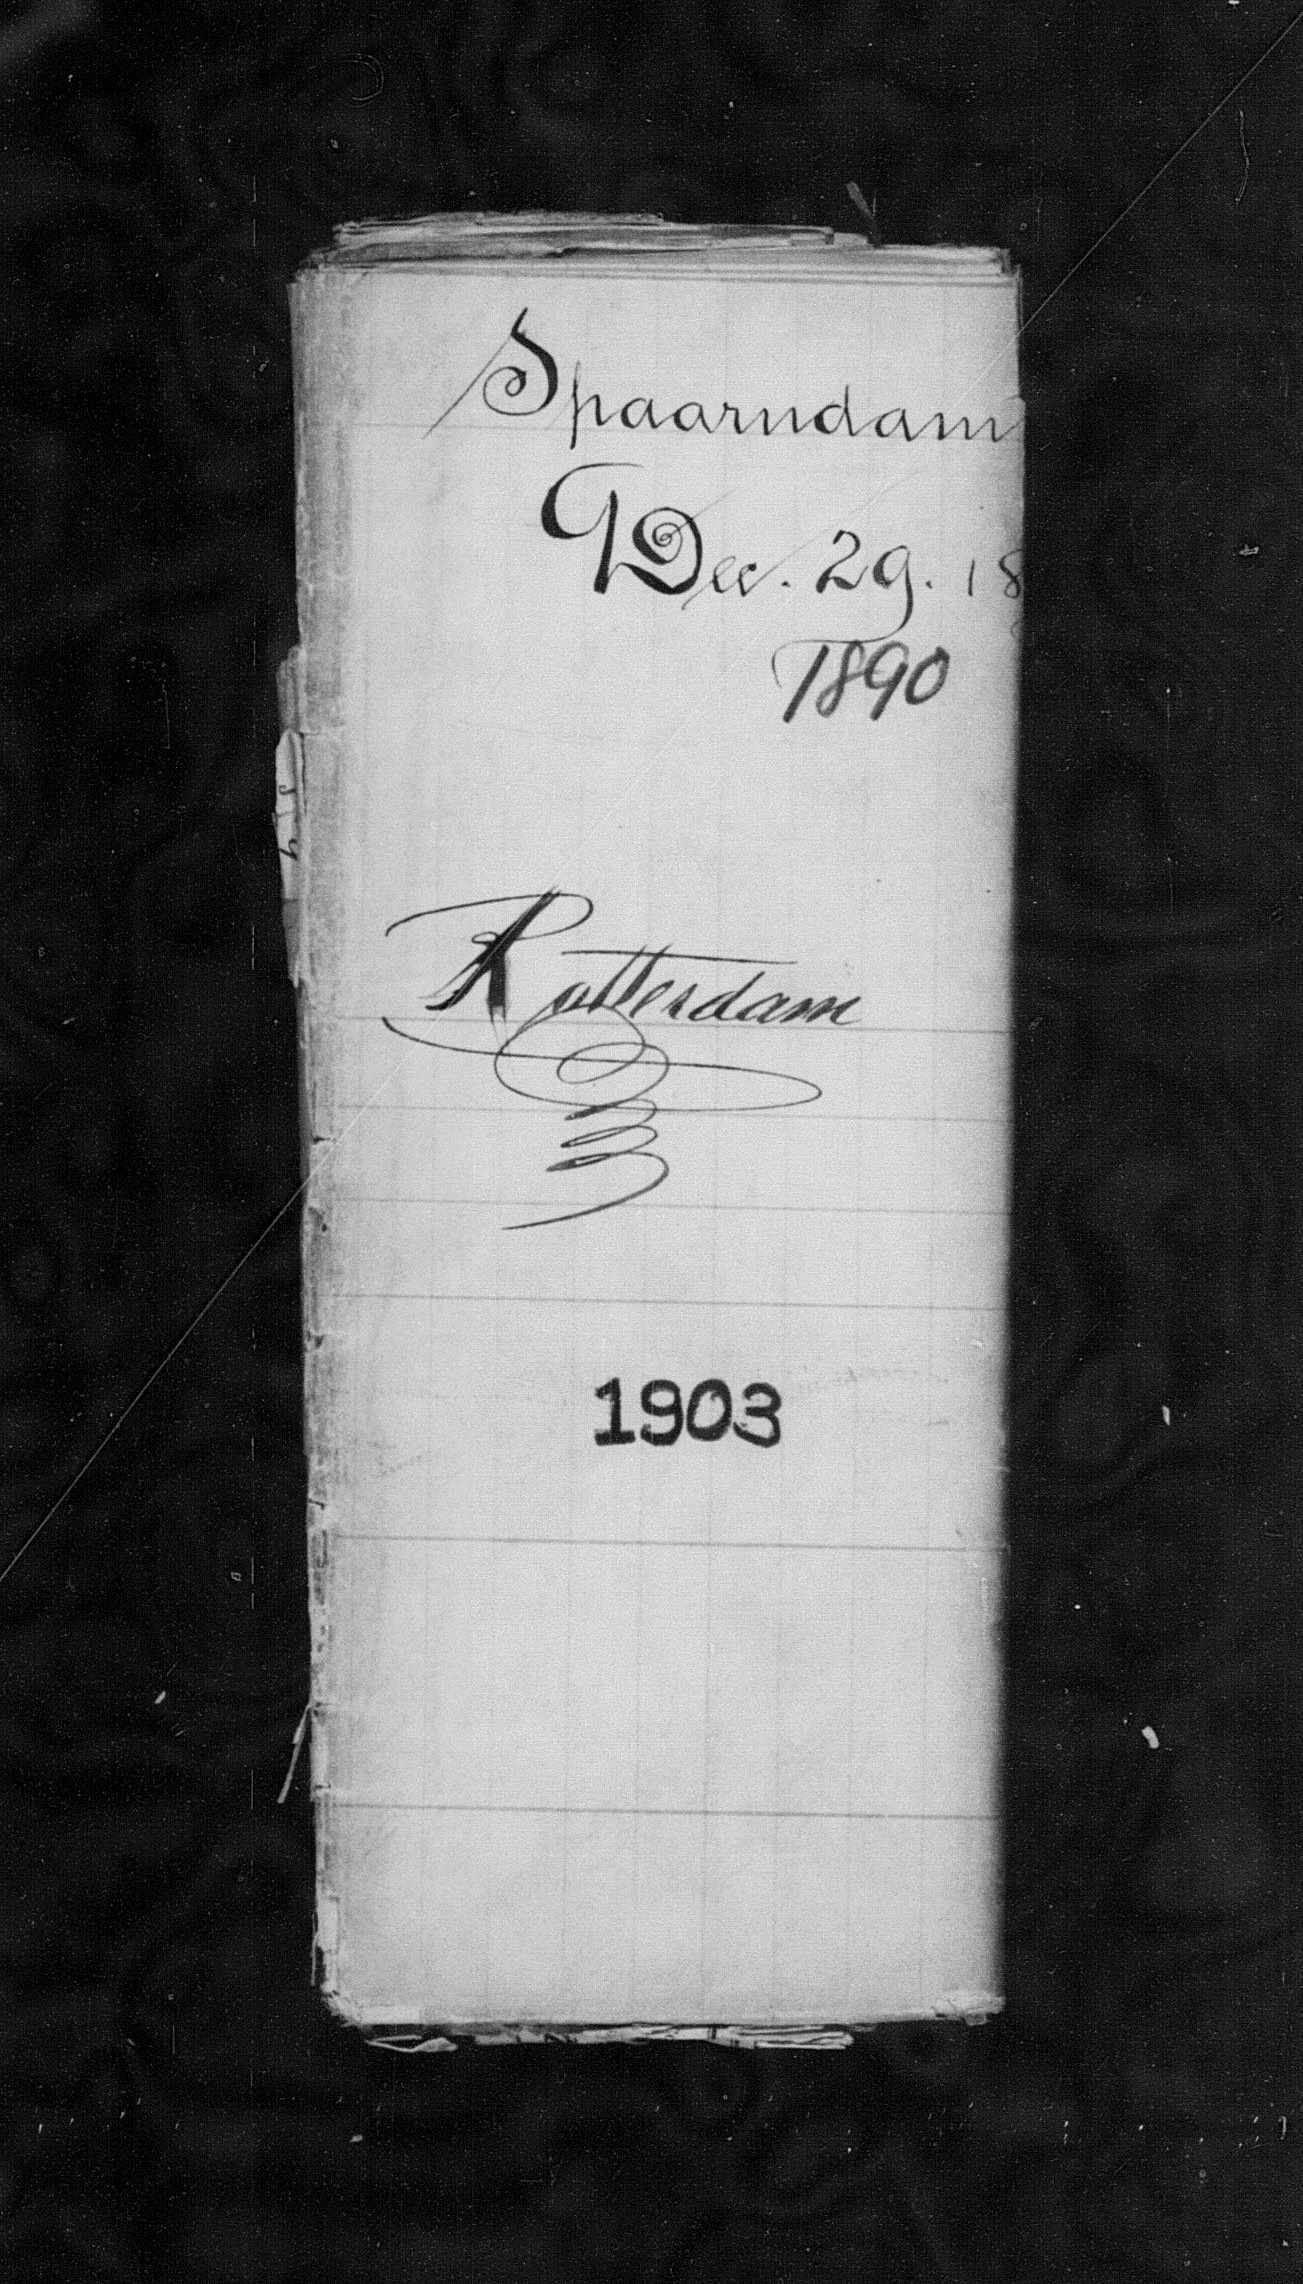 Spaarndam
Dec. 29. 18
1890
Rotterdam
1903